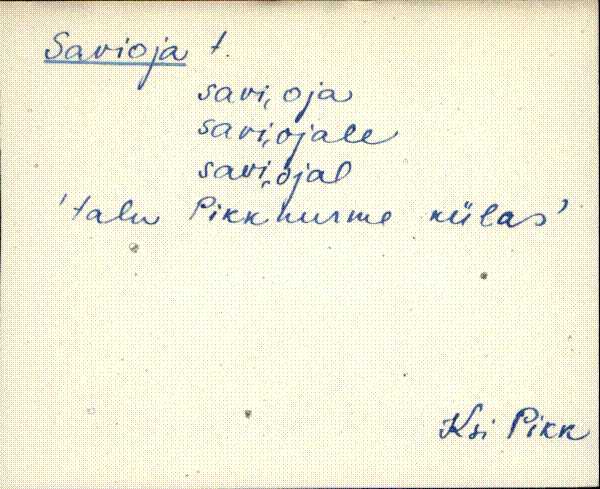 Savioja t.
savi,oja
savi,ojale
savi,ojal
'talu Pikknurme külas'
Ksi Pikk